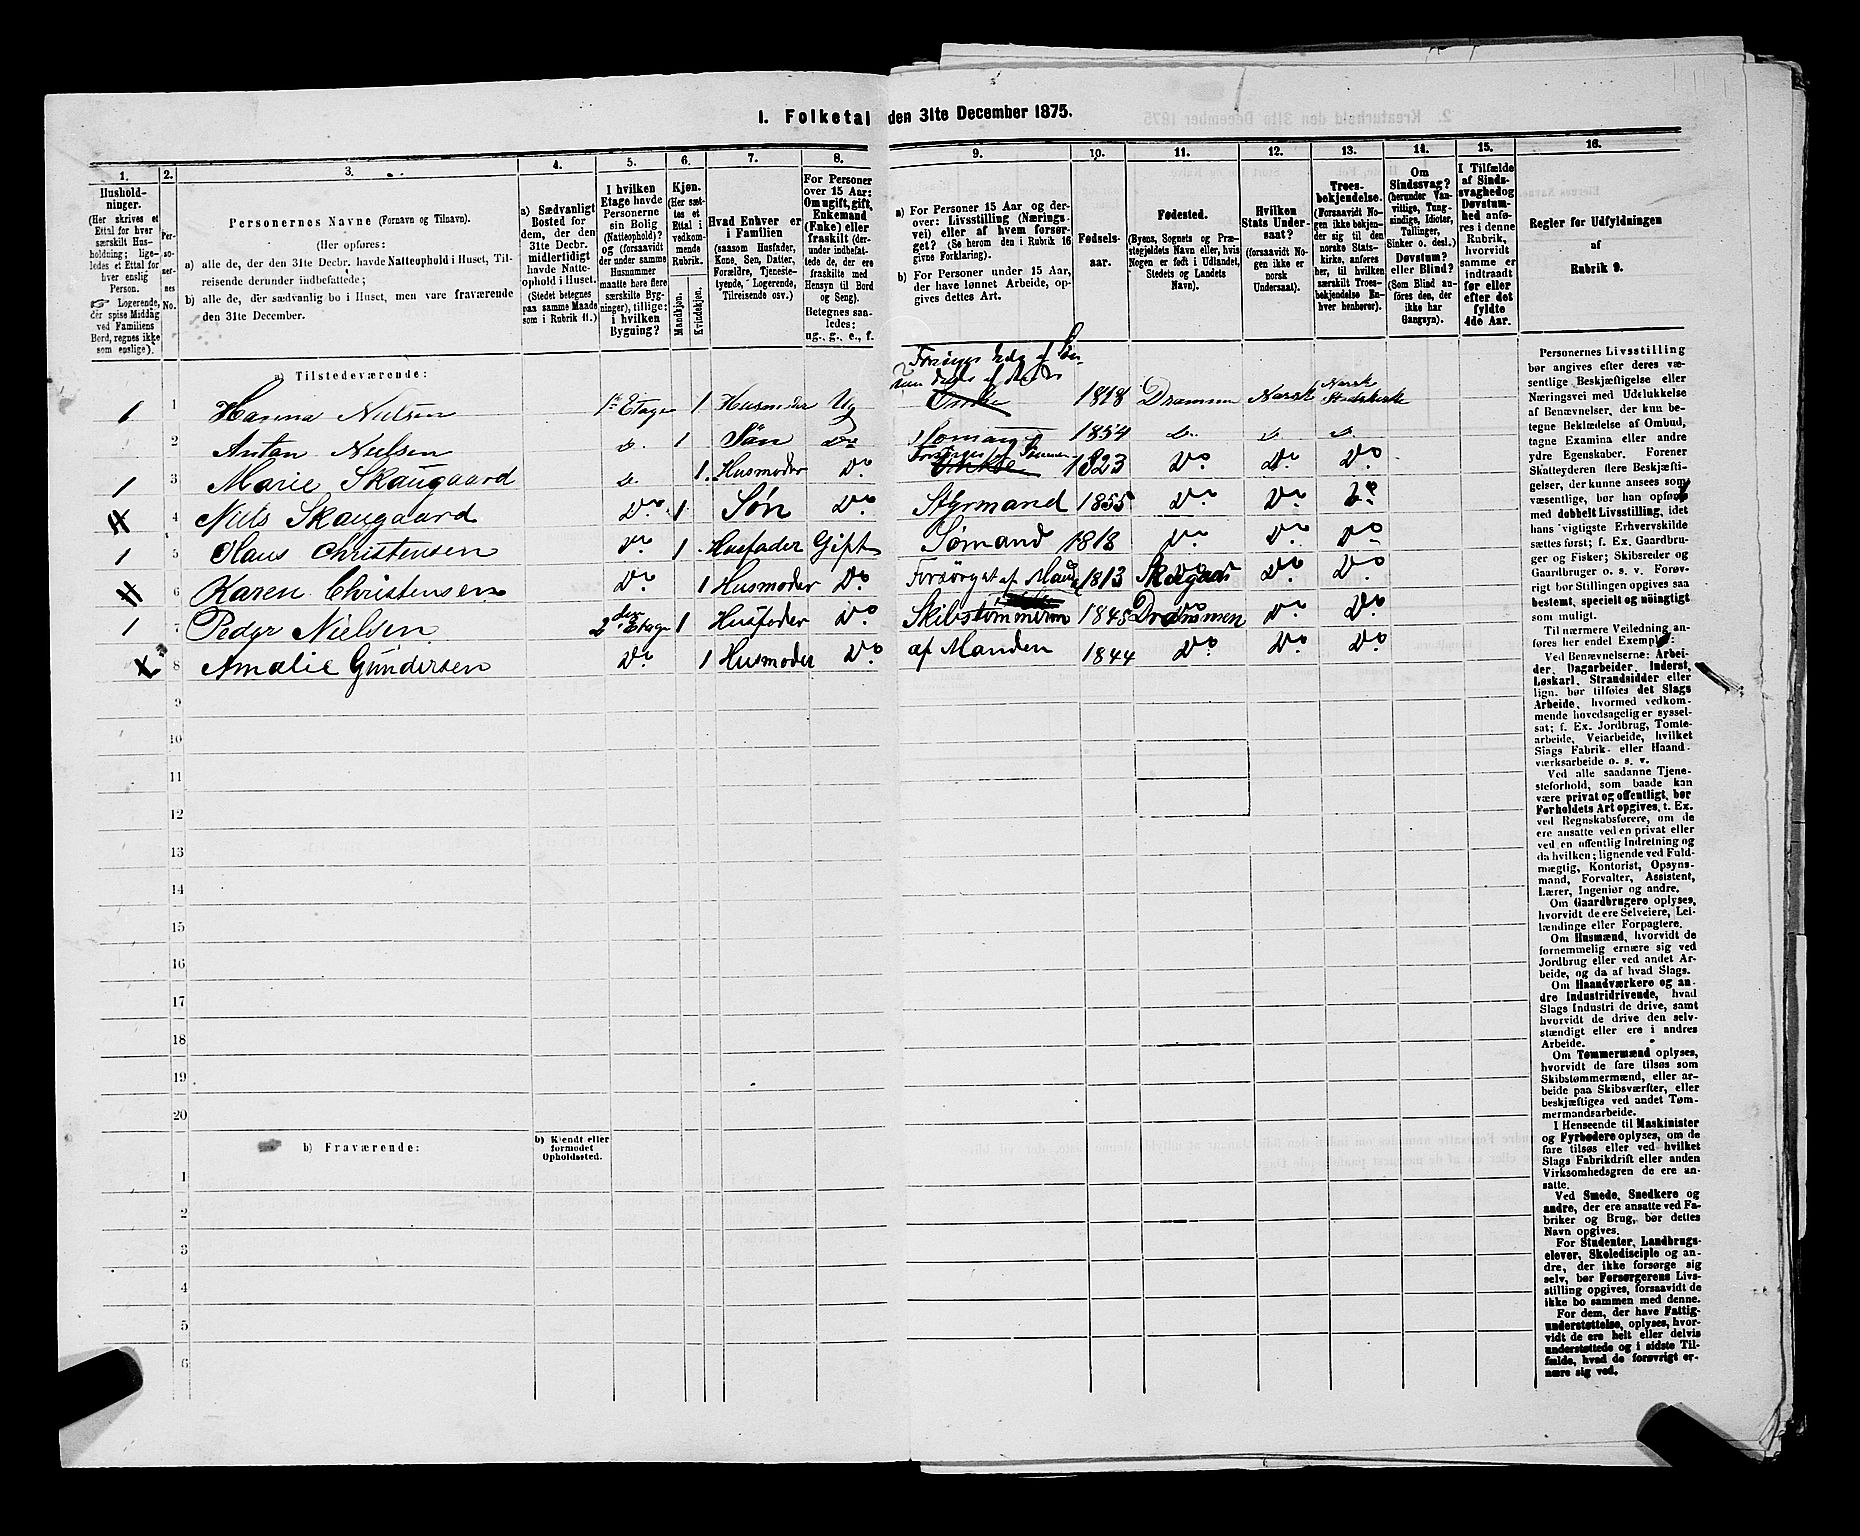 1. Folketal den 31te December 1875.
1. 2. 3. 4. 5. 6. 7. 8. 9. 10. 11. 12. 13. 14. 15. 16.
Husholdninger.
(Her skrives et
Ettal for hver
særskilt Husholdning;
ligeledes et Ettal for
hver enslig
Person.
Logerende,
der spise Middag
ved Familiens
Bord, regnes ikke
som enslige).
Personernes No.
Personernes Navne (Fornavn og Tilnavn).
(Her opføres:
a) alle de, der den 31te Decbr. havde Natteophold i Huset, Tilreisende
derunder indbefattede;
b) alle de, der sædvanlig bo i Huset, men vare fraværende
den 31te December.
a) Sædvanligt
Bosted for
dem, der den
31te Decbr.
midlertidigt
havde Natteophold
i Huset.
(Stedet betegnes
paa samme Maade
som i Rubrik 11.)
I hvilken
Etage havde
Personerne
sin Bolig
(Natteophold)?
(forsaavidt
der under samme
Husnummer
maatte høre flere
særskilte Bygninger),
tillige:
i hvilken
Bygning?
Kjøn.
(Her sættes
et
Ettal i
vedkommende
Rubrik.
Mandkjøn.
Kvindekjøn.
Hvad Enhver er
i Familien
(saasom Husfader,
Kone, Søn, Datter,
Forældre, Tjenestetyende,
Logerende,
Tilreisende osv.)
For Personer
over 15 Aar:
Om ugift, gift,
Enkemand
(Enke) eller
fraskilt (derunder
indbefattede
de, der ere
fraskilte med
Hensyn til Bord
og Seng).
Betegnes saaledes:
ug., g., e., f.
a) For Personer 15 Aar og derover:
Livsstilling (Næringsvei)
eller af hvem forsørget?
(Se herom den i Rubrik 16
givne Forklaring).
b) For Personer under 15 Aar,
der have lønnet Arbeide, opgives
dettes Art.
Fødselsaar.
Fødested.
(Byens, Sognets og Præstegjeldets
Navn eller, hvis
Nogen er født i Udlandet,
Stedets og Landets
Navn).
Hvilken
Stats Undersaat?
(forsaavidt Nogen
ikke er
norsk
Undersaat).
Troesbekjendelse.
(Forsaavidt Nogen
ikke bekjender
sig til den
norske Statskirke,
anføres
her, til hvilken
særskilt Troesbekjendelse
Enhver
henhører).
Om
Sindssvag?
(herunder Vanvittige,
Tungsindige,
Idioter,
Tullinger,
Sinker o. desl.)
Døvstum?
eller Blind?
(Som Blind anføres
den, der
ikke har
Gangsyn).
I Tilfælde
af Sindssvaghed
og
Døvstumhed
anføres
i denne
Rubrik,
hvorvidt
samme er
indtraadt
før eller
efter det
fyldte
4de Aar.
Regler for Udfyldningen
af
Rubrik 9.
a) Tilstedeværende:
1 1 Hanna Nielsen 1ste Etage 1 Husmoder Ug 1818 Drammen Norsk Norsk Statskirke
2 Anton Nielsen Do. 1 Søn Do Sømand 1854 Do. Do. Do.
1 3 Marie Skaugaard Do. 1 Husmoder Do Forsørges af Sønnen 1823 Do Do Do
4 Niels Skaugaard Do 1 Søn Do Styrmand 1855 Do Do Do
1 5 Claus Christensen Do 1 Husfader Gift Sømand 1818 Do Do Do
6 Karen Christensen Do 1 Husmoder Do Forsørget af Mand 1813 Do Do
1 7 Peder Nielsen 2den Etage 1 Husfader Do Skibstømmerm 1845 Drammen Do Do
8 Amalie Gundersen Do 1 Husmoder Do af Manden 1844 Do Do Do
9
10
11
12
13
14
15
16
17
18
19
20
b) Fraværende:
b) Kjendt eller
formodet
Opholdssted.
1
2
3
4
5
6
Personernes Livsstilling
bør angives efter deres væsentlige
Beskjæftigelse eller
Næringsvei med Udelukkelse
af Benævnelser, der kun betegne
Beklædelse af Ombud,
tagne Examina eller andre
ydre Egenskaber. Forener
Skatteyderen flere Beskjæftigelser,
der kunne ansees som
væsentlige, bør han opføres
med dobbelt Livsstilling, idet
hans vigtigste Erhvervskilde
sættes først; f. Ex. Gaardbruger
og Fisker; Skibsreder og
Gaardbruger o. s. v. Forøvrigt
bør Stillingen opgives saa
bestemt, specielt og nøiagtigt
som muligt.
Til nærmere Veiledning anføres
her endel Exempler:
Ved Benævnelserne: Arbeider,
Dagarbeider, Inderst,
Løskarl, Strandsidder eller
lign. bør tilføies det Slags
Arbeide, hvormed vedkommende
hovedsagelig er sysselsat;
f. Ex. Jordbrug, Tomtearbeide,
Veiarbeide, hvilket
Slags Fabrik- eller Haandværksarbeide
o. s. v.
Ved alle saadanne Tjenesteforhold,
som baade kan
være privat og offentligt, bør
Forholdets Art opgives, t. Ex.
ved Regnskabsførere, om de
ere ansatte ved en privat eller
ved en offentlig Indretning og
da hvilken; lignende ved Fuldmægtig,
Kontorist, Opsynsmand,
Forvalter, Assistent,
Lærer, Ingeniør og andre.
Om Gaardbrugere oplyses,
hvorvidt de ere Selveiere, Leilændinge
eller Forpagtere.
Om Husmænd, hvorvidt de
fornemmelig ernære sig ved
Jordbrug eller ved andet Arbeide,
og da af hvad Slags.
Om Haandværkere og andre
Industridrivende, hvad
Slags Industri de drive, samt
hvorvidt de drive den selvstændigt
eller ere i andres
Arbeide.
Om Tømmermænd oplyses,
hvorvidt de fare tilsøs som
Skibstømmermænd, eller arbeide
paa Skibsværfter, eller
beskjæftiges ved andet Tømmermandsarbeide.
I Henseende til Maskinister
og Fyrbødere oplyses, om de
fare tilsøs eller ved hvilket
Slags Fabrikdrift eller anden
Virksomhedsgren de ere ansatte.
Ved Smede, Snedkere og
andre, der ere ansatte ved Fabriker
og Brug, bør dettes
Navn opgives.
For Studenter, Landbrugselever,
Skoledisciple og andre,
der ikke forsørge sig
selv, bør Forsørgerens Livsstilling
opgives, forsaavidt de
ikke bo sammen med denne.
For dem, der have Fattigunderstøttelse,
oplyses, hvorvidt
de ere helt eller delvis
understøttede og i sidste Tilfælde,
hvad de forøvrigt ernære
sig ved.